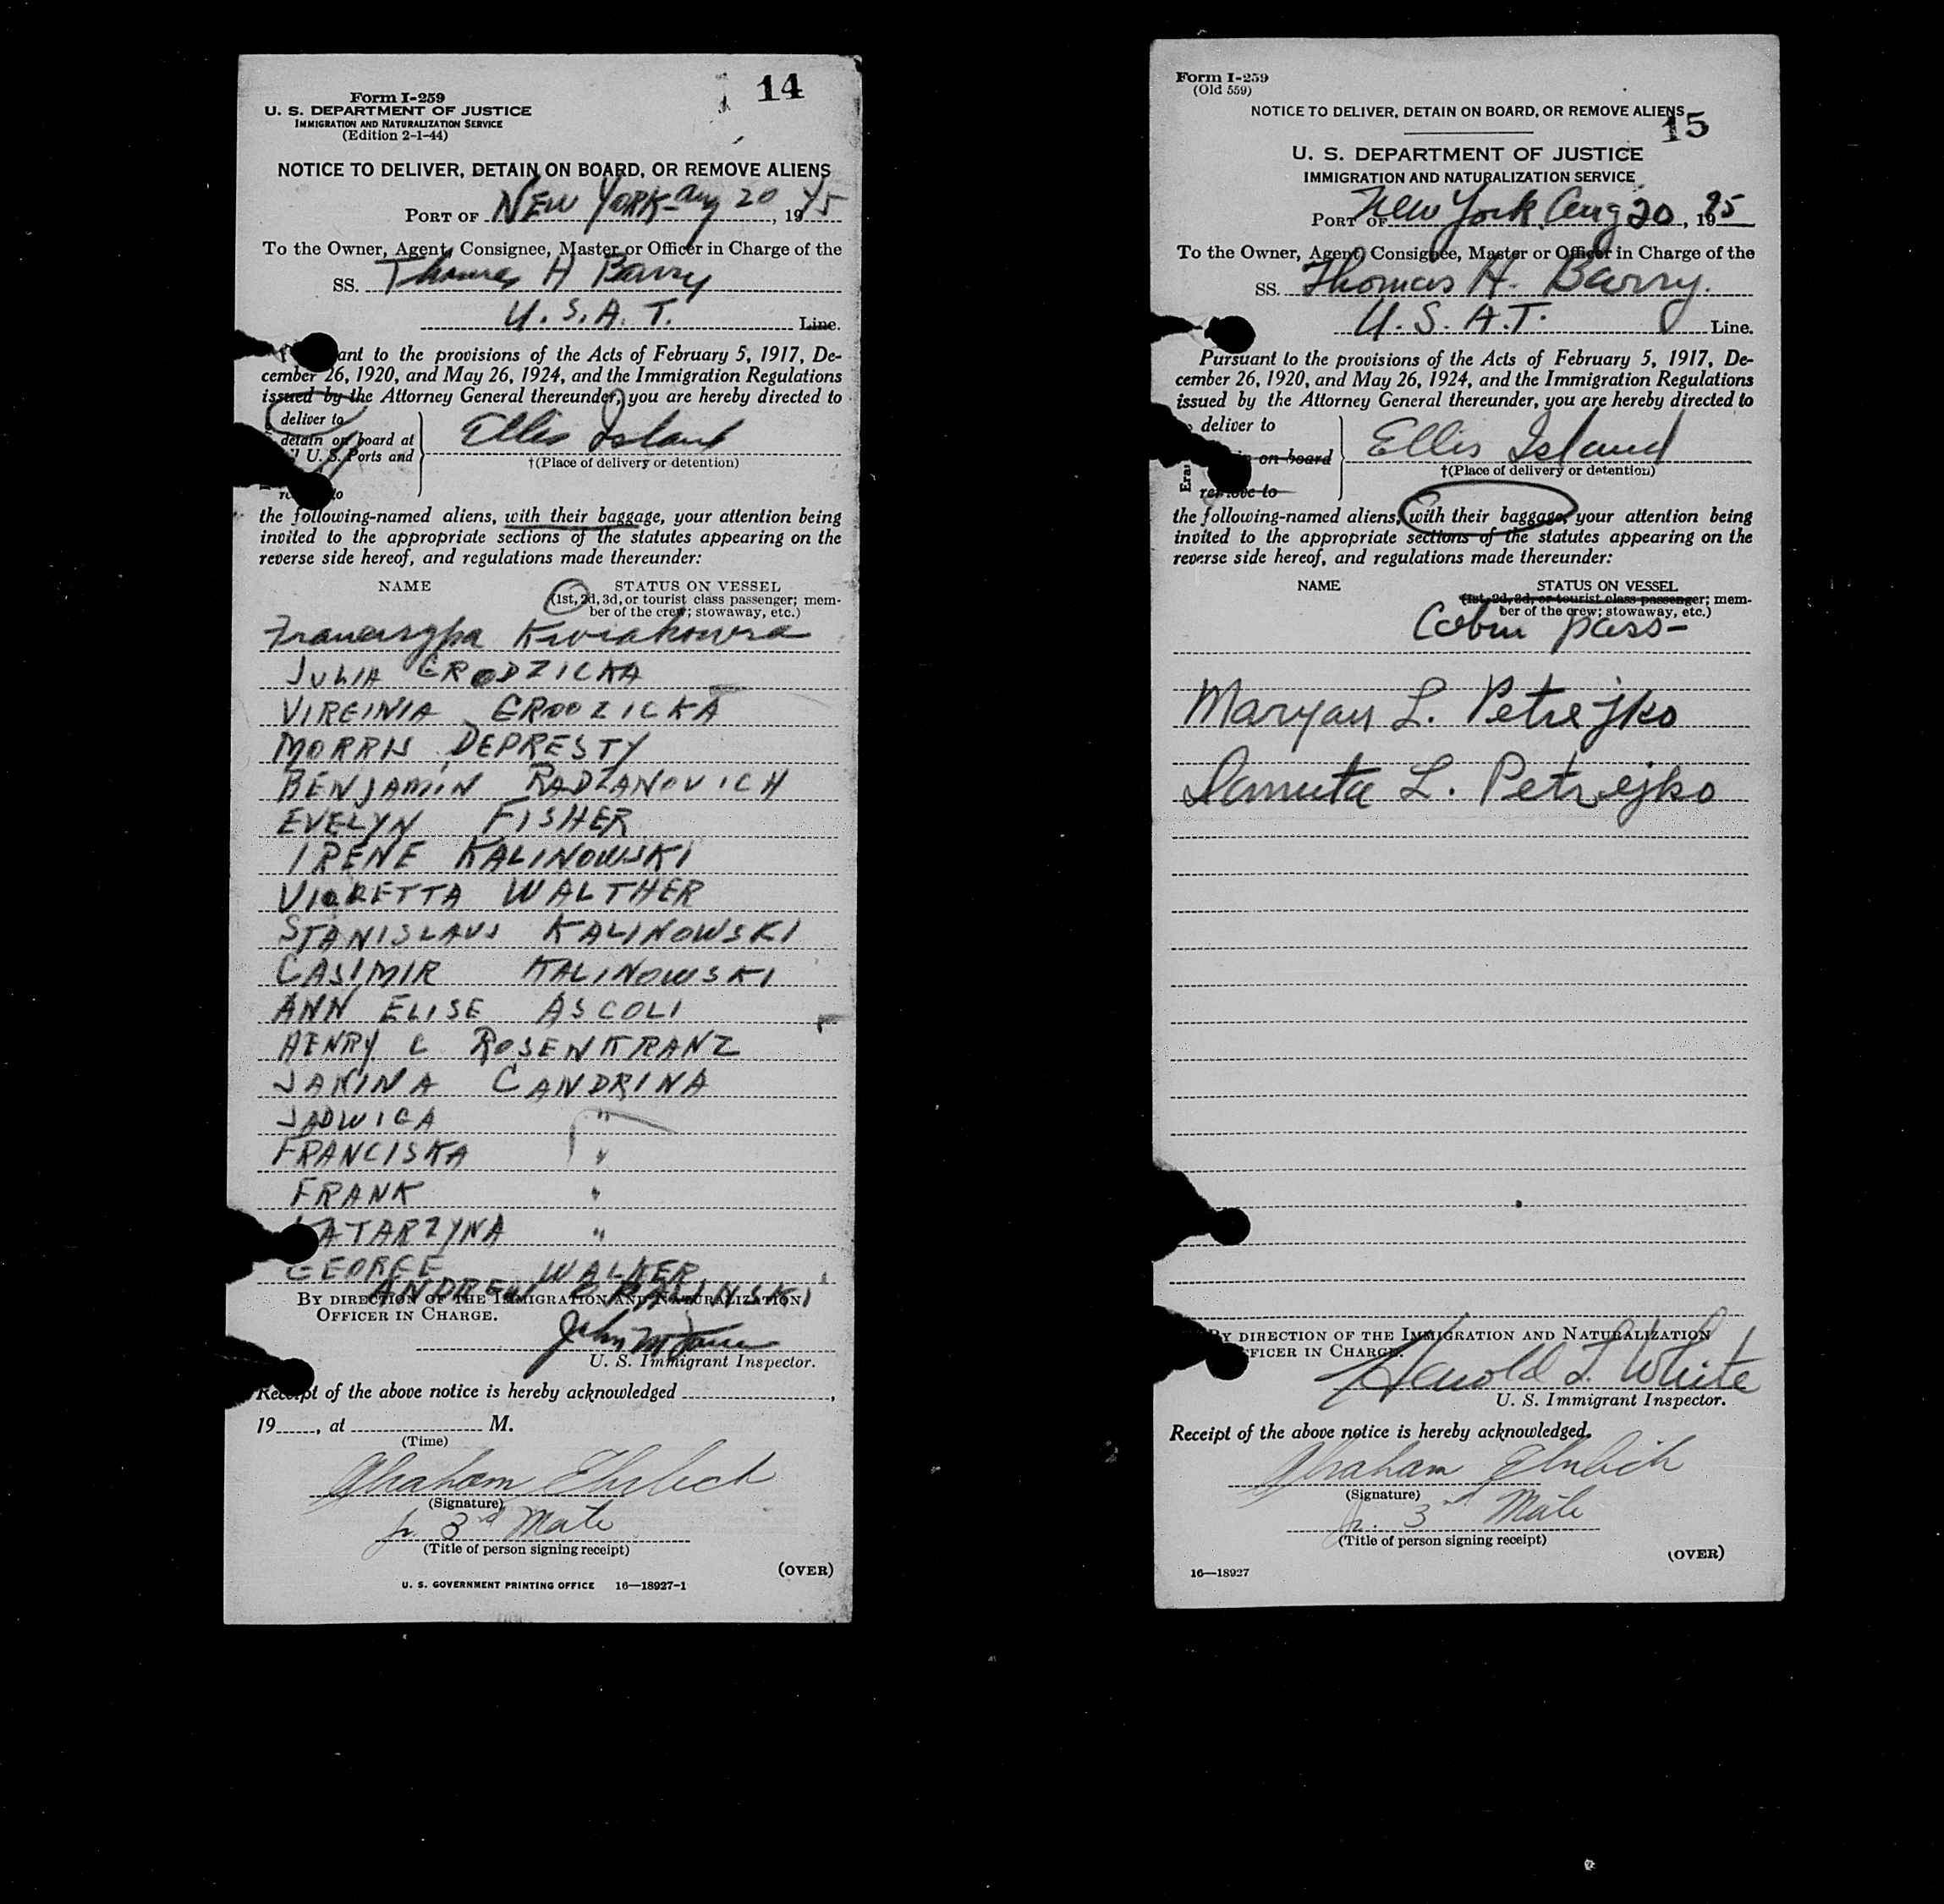 14
Form I-259
U. S. DEPARTMENT OF JUSTICE
IMMIGRATION AND NATURALIZATION SERVICE
(Edition 2-1-44)
NOTICE TO DELIVER, DETAIN ON BOARD, OR REMOVE ALIENS
PORT OF NEW YORK - Aug 20, 1945
To the Owner, Agent, Consignee, Master or Officer in Charge of the
SS. Thomas H Barry
U. S. A. T. Line.
ant to the provisions of the Acts of February 5, 1917, De-
cember 26, 1920, and May 26, 1924, and the Immigration Regulations
issued by the Attorney General thereunder, you are hereby directed to
deliver to
detain on board at
U. S. Ports and
to
Ellis Island
†(Place of delivery or detention)
the following-named aliens, with their baggage, your attention being
invited to the appropriate sections of the statutes appearing on the
reverse side hereof, and regulations made thereunder:
NAME STATUS ON VESSEL
(1st, 2d, 3d, or tourist class passenger; mem-
ber of the crew; stowaway, etc.)
JULIA GRODZICKA
VIRGINIA GRODZICKA
MORRIS DEPRESTY
BENJAMIN RADZANOVICH
EVELYN FISHER
IRENE KALINOWSKI
VIOLETTA WALTHER
STANISLAUS KALINOWSKI
CASIMIR KALINOWSKI
ANN ELISE ASCOLI
HENRY C ROSENKRANZ
JANINA CANDRINA
JADWIGA "
FRANCISKA "
FRANK "
KATARZYNA "
GEORGE WALKER
ANDREW
BY DIRECTION OF THE IMMIGRATION AND NATURALIZATION
OFFICER IN CHARGE.
John M
U. S. Immigrant Inspector.
Receipt of the above notice is hereby acknowledged ,
19 , at M.
(Time)
Abraham Ehrlich
(Signature)
Jr. 3rd Mate
(Title of person signing receipt)
(OVER)
U. S. GOVERNMENT PRINTING OFFICE 16—18927-1
Form I-259
(Old 559)
NOTICE TO DELIVER, DETAIN ON BOARD, OR REMOVE ALIENS
15
U. S. DEPARTMENT OF JUSTICE
IMMIGRATION AND NATURALIZATION SERVICE
PORT OF New York, Aug 20, 1945
To the Owner, Agent, Consignee, Master or Officer in Charge of the
SS. Thomas H. Barry.
U. S. A. T. Line.
Pursuant to the provisions of the Acts of February 5, 1917, De-
cember 26, 1920, and May 26, 1924, and the Immigration Regulations
issued by the Attorney General thereunder, you are hereby directed to
deliver to
on board
remove to
Ellis Island
†(Place of delivery or detention)
the following-named aliens, with their baggage, your attention being
invited to the appropriate sections of the statutes appearing on the
reverse side hereof, and regulations made thereunder:
NAME STATUS ON VESSEL
(1st, 2d, 3d, or tourist class passenger; mem-
ber of the crew; stowaway, etc.)
Cabin pass-
Maryan L. Petrejko
Danuta L. Petrejko
BY DIRECTION OF THE IMMIGRATION AND NATURALIZATION
OFFICER IN CHARGE.
Harold L. White
U. S. Immigrant Inspector.
Receipt of the above notice is hereby acknowledged.
Abraham Ehrlich
(Signature)
Jr. 3rd Mate
(Title of person signing receipt)
(OVER)
16—18927